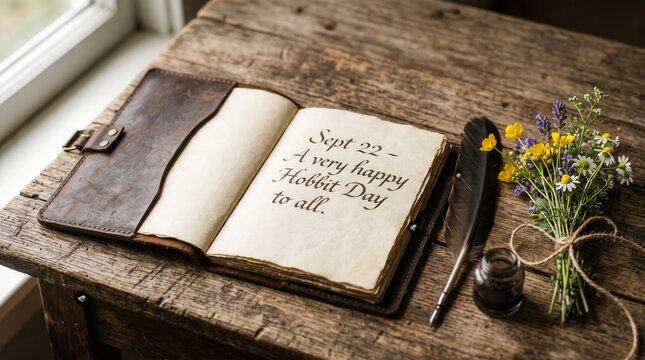 Sept 22 -
A very happy
Hobbit Day
to all.